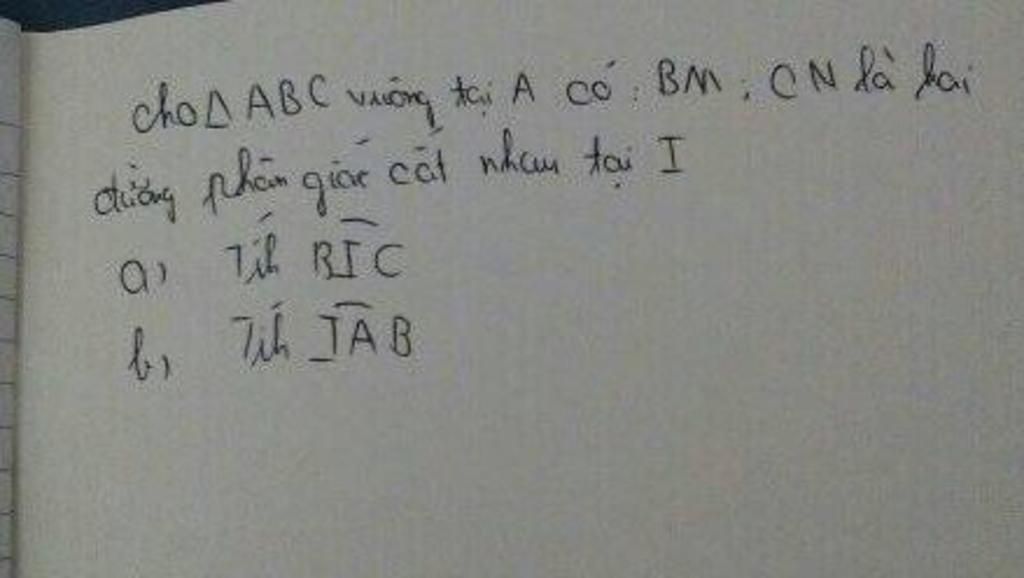 cho Δ ABC vuông tại A có : BM ; CN là hai
đường phân giác cắt nhau tại I
a, Tính BIC
b, Tính IAB